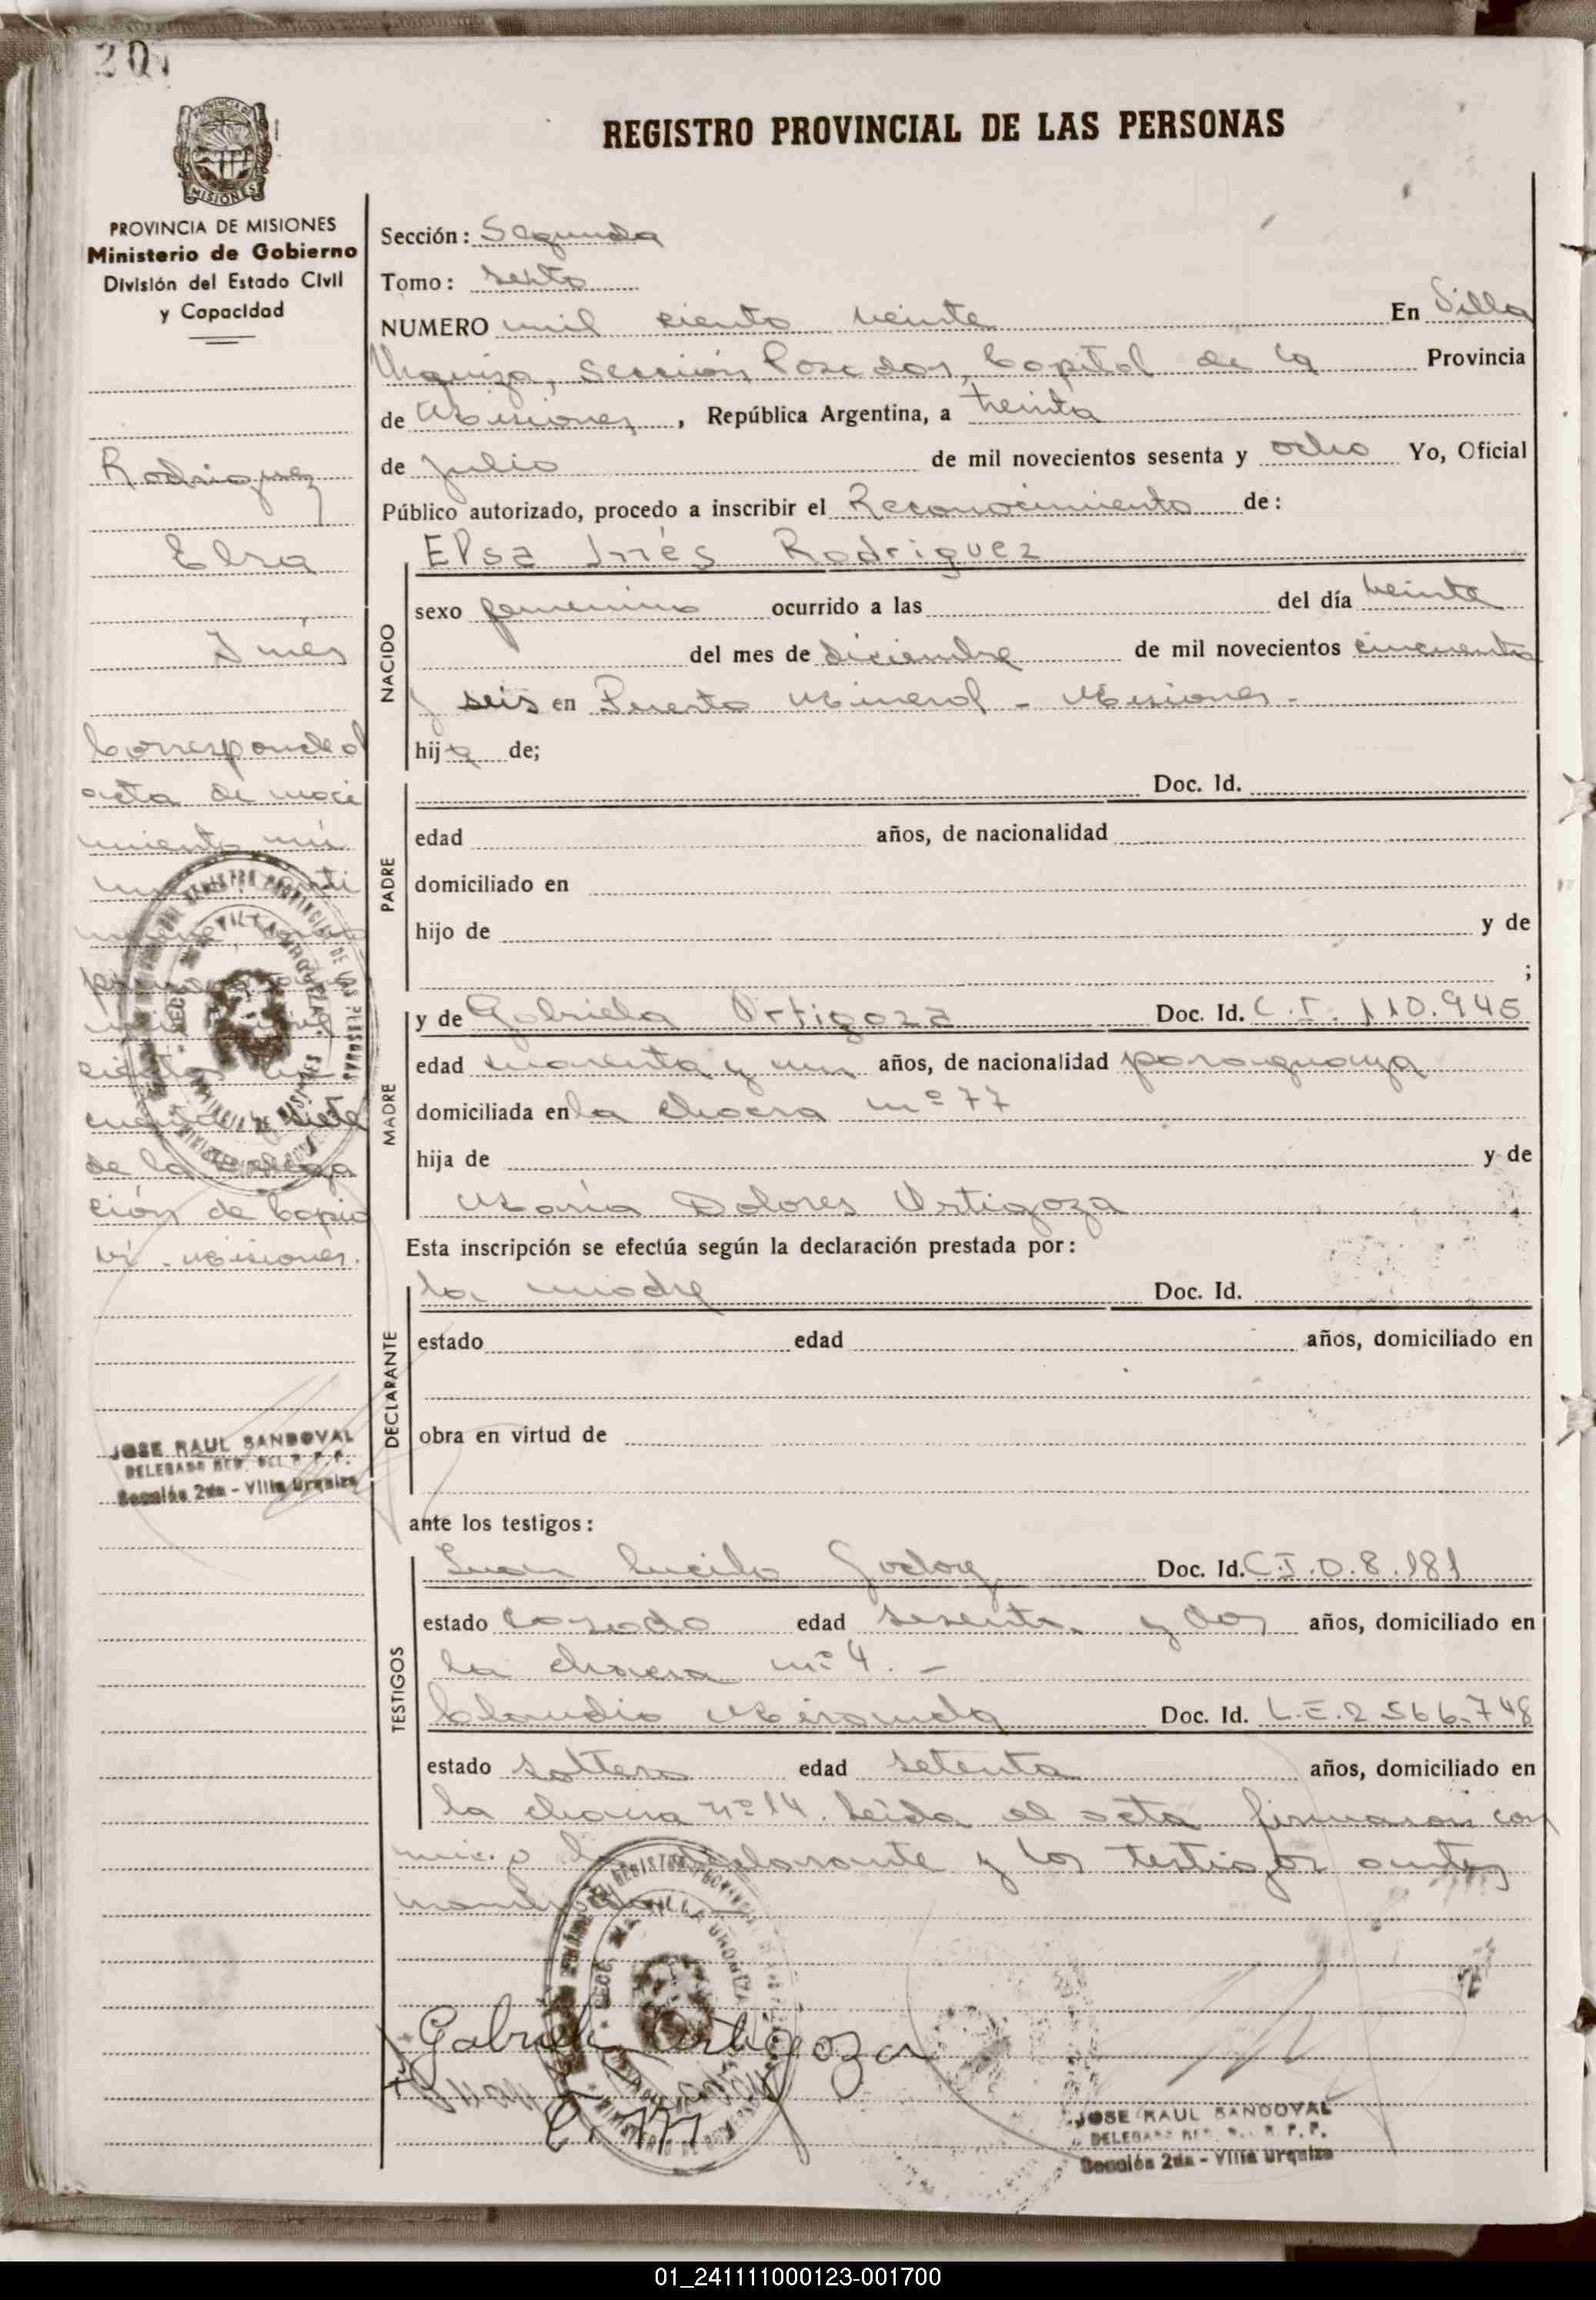 201
PROVINCIA DE
MISIONES
REGISTRO PROVINCIAL DE LAS PERSONAS
PROVINCIA DE MISIONES
Ministerio de Gobierno
División del Estado Civil
y Capacidad
Rodriguez
Elsa
Inés
Corresponde al
acta de naci
miento nú
mil nove
cientos cin
cuenta y siete
de la Delega
ción de Capio
ví - Misiones.
JOSE RAUL SANDOVAL
Sección 2da - Villa Urquiza
Sección: Segunda
Tomo: Sexto
NUMERO mil ciento veinte En Villa
Urquiza, Sección Posadas, Capital de la Provincia
de Misiones, República Argentina, a treinta
de julio de mil novecientos sesenta y ocho Yo, Oficial
Público autorizado, procedo a inscribir el Reconocimiento de:
Elsa Inés Rodriguez
NACIDO
sexo femenino ocurrido a las del día veinte
del mes de diciembre de mil novecientos cincuenta
y seis en Puerto Mineral - Misiones.-
hija de;
PADRE
Doc. Id.
edad años, de nacionalidad
domiciliado en
hijo de y de
;
MADRE
y de Gabriela Ortigoza Doc. Id. C.I. 110.945
edad cuarenta y un años, de nacionalidad paraguaya
domiciliada en la chacra nº 77
hija de y de
María Dolores Ortigoza
Esta inscripción se efectúa según la declaración prestada por:
DECLARANTE
la madre Doc. Id.
estado edad años, domiciliado en
obra en virtud de
ante los testigos:
TESTIGOS
Juan Lucilo Godoy Doc. Id. C.I.0.8.181
estado casado edad sesenta y dos años, domiciliado en
la chacra nº 4. -
Claudio Miranda Doc. Id. L.E.2.566.748
estado soltero edad setenta años, domiciliado en
la chacra nº 14. Leída el acta firmaron con
migo la declarante y los testigos antes
Gabriela Ortigoza
C. M
JOSE RAUL SANDOVAL
Sección 2da - Villa Urquiza
01_241111000123-001700